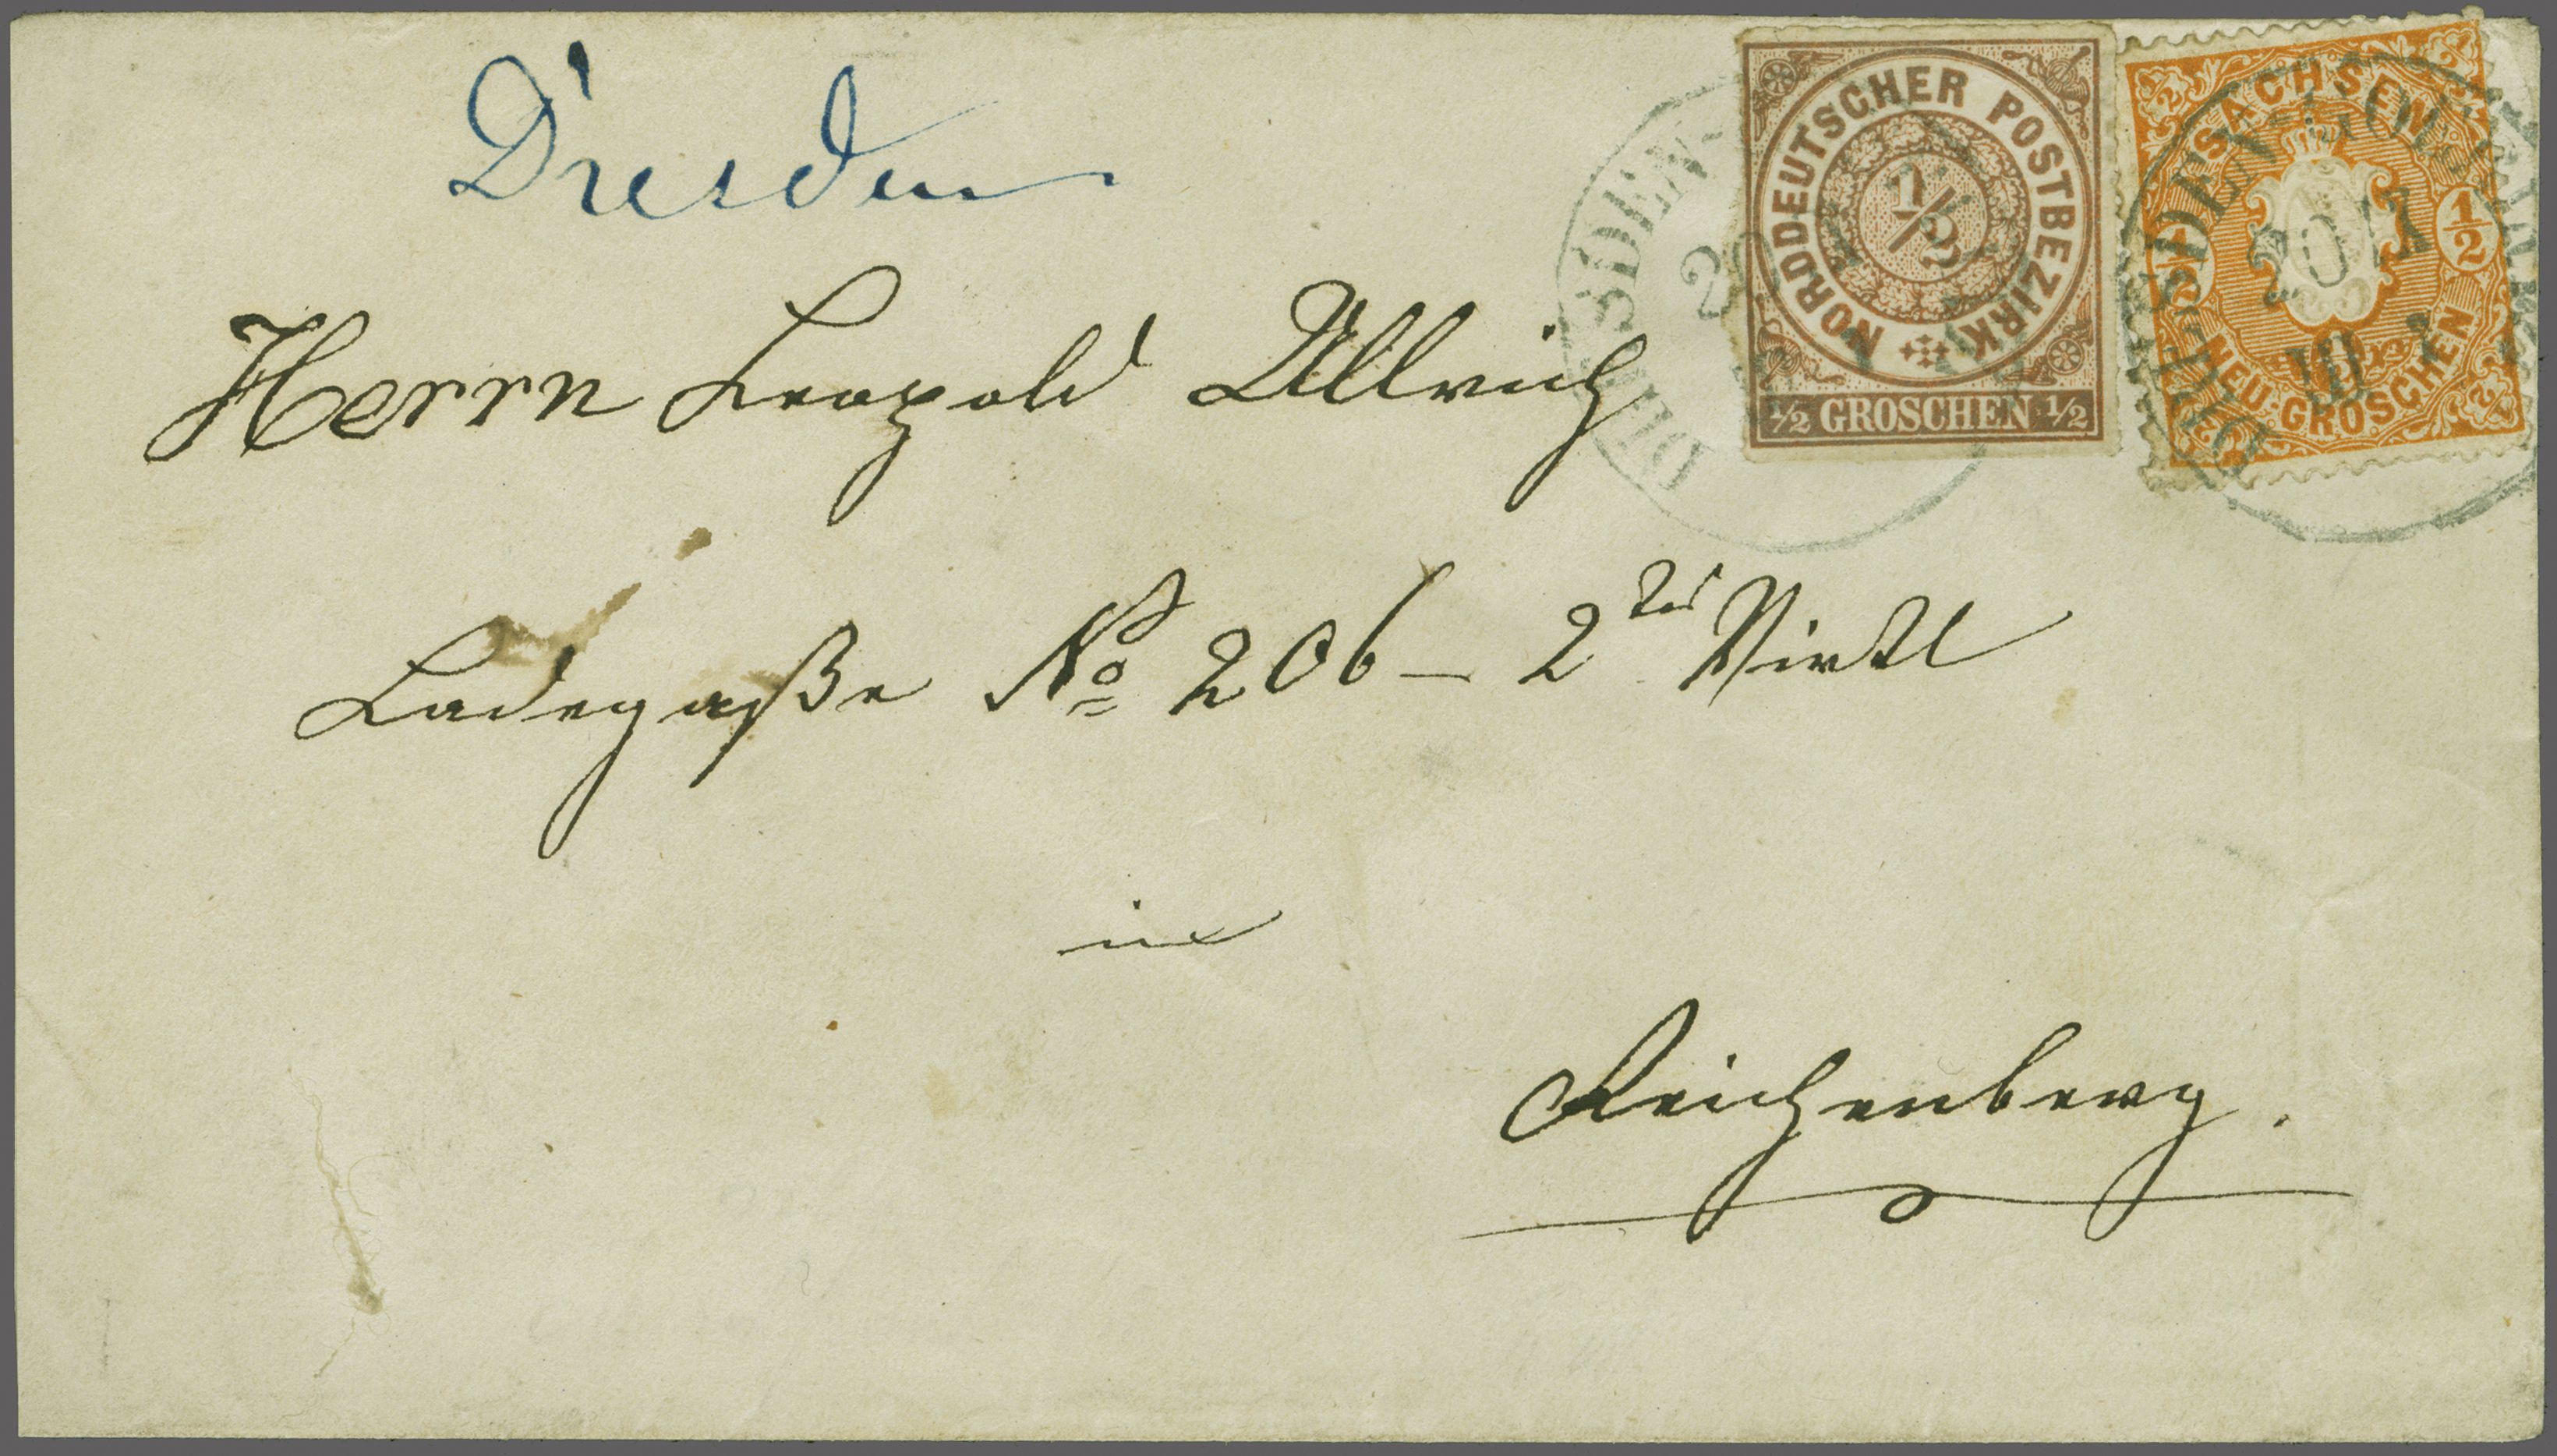 Dresden
Herrn Leopold Ullrich
Ladegaße No 206 – 2tes Virtl
in
Reichenberg.
NORDDEUTSCHER POSTBEZIRK
1/2
1/2 GROSCHEN 1/2
SACHSEN
1/2 1/2
NEU-GROSCHEN
DRESDEN
20
DRESDEN
20 II
III